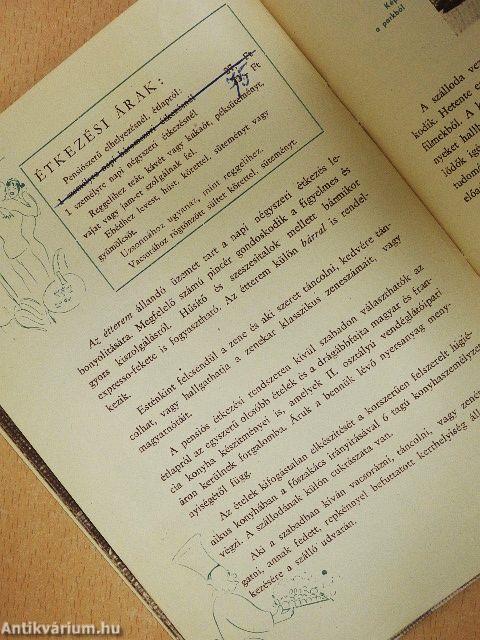 ÉTKEZÉSI ÁRAK:
Penziószerű elhelyezésnél, étlapról:
Ft
1 személyre napi négyszeri étkezésnél
75 Ft
Reggelihez teát, kávét vagy kakaót, péksüteményt,
vajat vagy jam-et szolgálnak fel.
Ebédhez levest, húst, körettel, süteményt vagy
gyümölcsöt.
Uzsonnához ugyanaz, mint reggelihez.
Vacsorához rögzönzött sültet körettel, süteményt.
Az étterem állandó üzemet tart a napi négyszeri étkezés le-
bonyolítására. Megfelelő számú pincér gondoskodik a figyelmes és
gyors kiszolgálásról. Hűsítő és szeszesitalok mellett bármikor
expresso-fekete is fogyasztható. Az étterem külön bárral is rendel-
kezik.
Esténkint felcsendül a zene és aki szeret táncolni, kedvére tán-
colhat, vagy hallgathatja a zenekar klasszikus zeneszámait, vagy
magyarnótáit.
A penziós étkezési rendszeren kívül szabadon választhatók az
étlapról az egyszerű olcsóbb ételek és a drágábbfajta magyar és fran-
cia konyha készítményei is, amelyek II. osztályú vendéglátóipari
áron kerülnek forgalomba. Áruk a bennük lévő nyersanyag meny-
nyiségétől függ.
Az ételek kifogástalan elkészítését a korszerűen felszerelt higié-
nikus konyhában a főszakács irányításával 6 tagú konyhaszemélyzet
végzi. A szállodának külön cukrászata van.
Aki a szabadban kíván vacsorázni, táncolni, vagy
gatni, annak fedett, repkénnyel befuttatott kerthelyiség
kezésére a szálló udvarán.
a parkból
A szálloda
kodik. Hetente
filmekből. A
nyéket
lódók
Antikvárium.hu